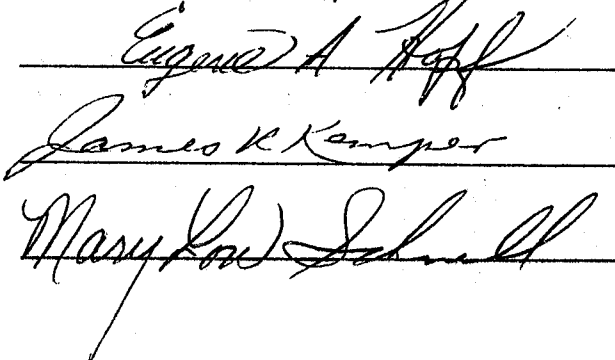 Eugene A Hopf
James K Kemper
Mary Lou Schnell